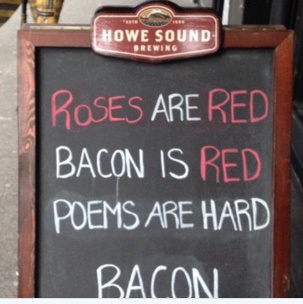 HOWE SOUND
BREWING
ROSES ARE RED
BACON IS RED
POEMS ARE HARD
BACON